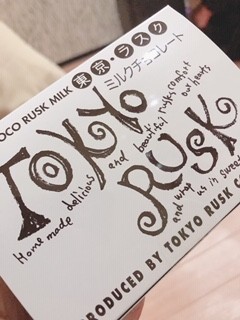 OCO RUSK MILK 東京・ラスク
ミルクチョコレート
TOKYO
Home made delicious and beautiful rusks comfort our hearts
RUSK
and wrap us in sweet
PRODUCED BY TOKYO RUSK CO